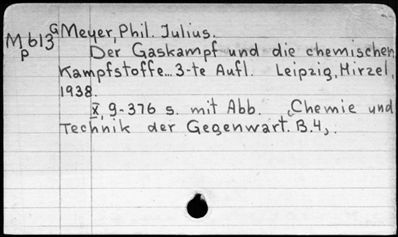 GMeyer, Phil. Julius.
M613
p
Der Gaskampf und die chemischen
Kampfstoffe... 3-te Aufl. Leipzig, Hirzel,
1938.
X, 9-376 s. mit Abb. „Chemie und
Technik der Gegenwart. B.4„.